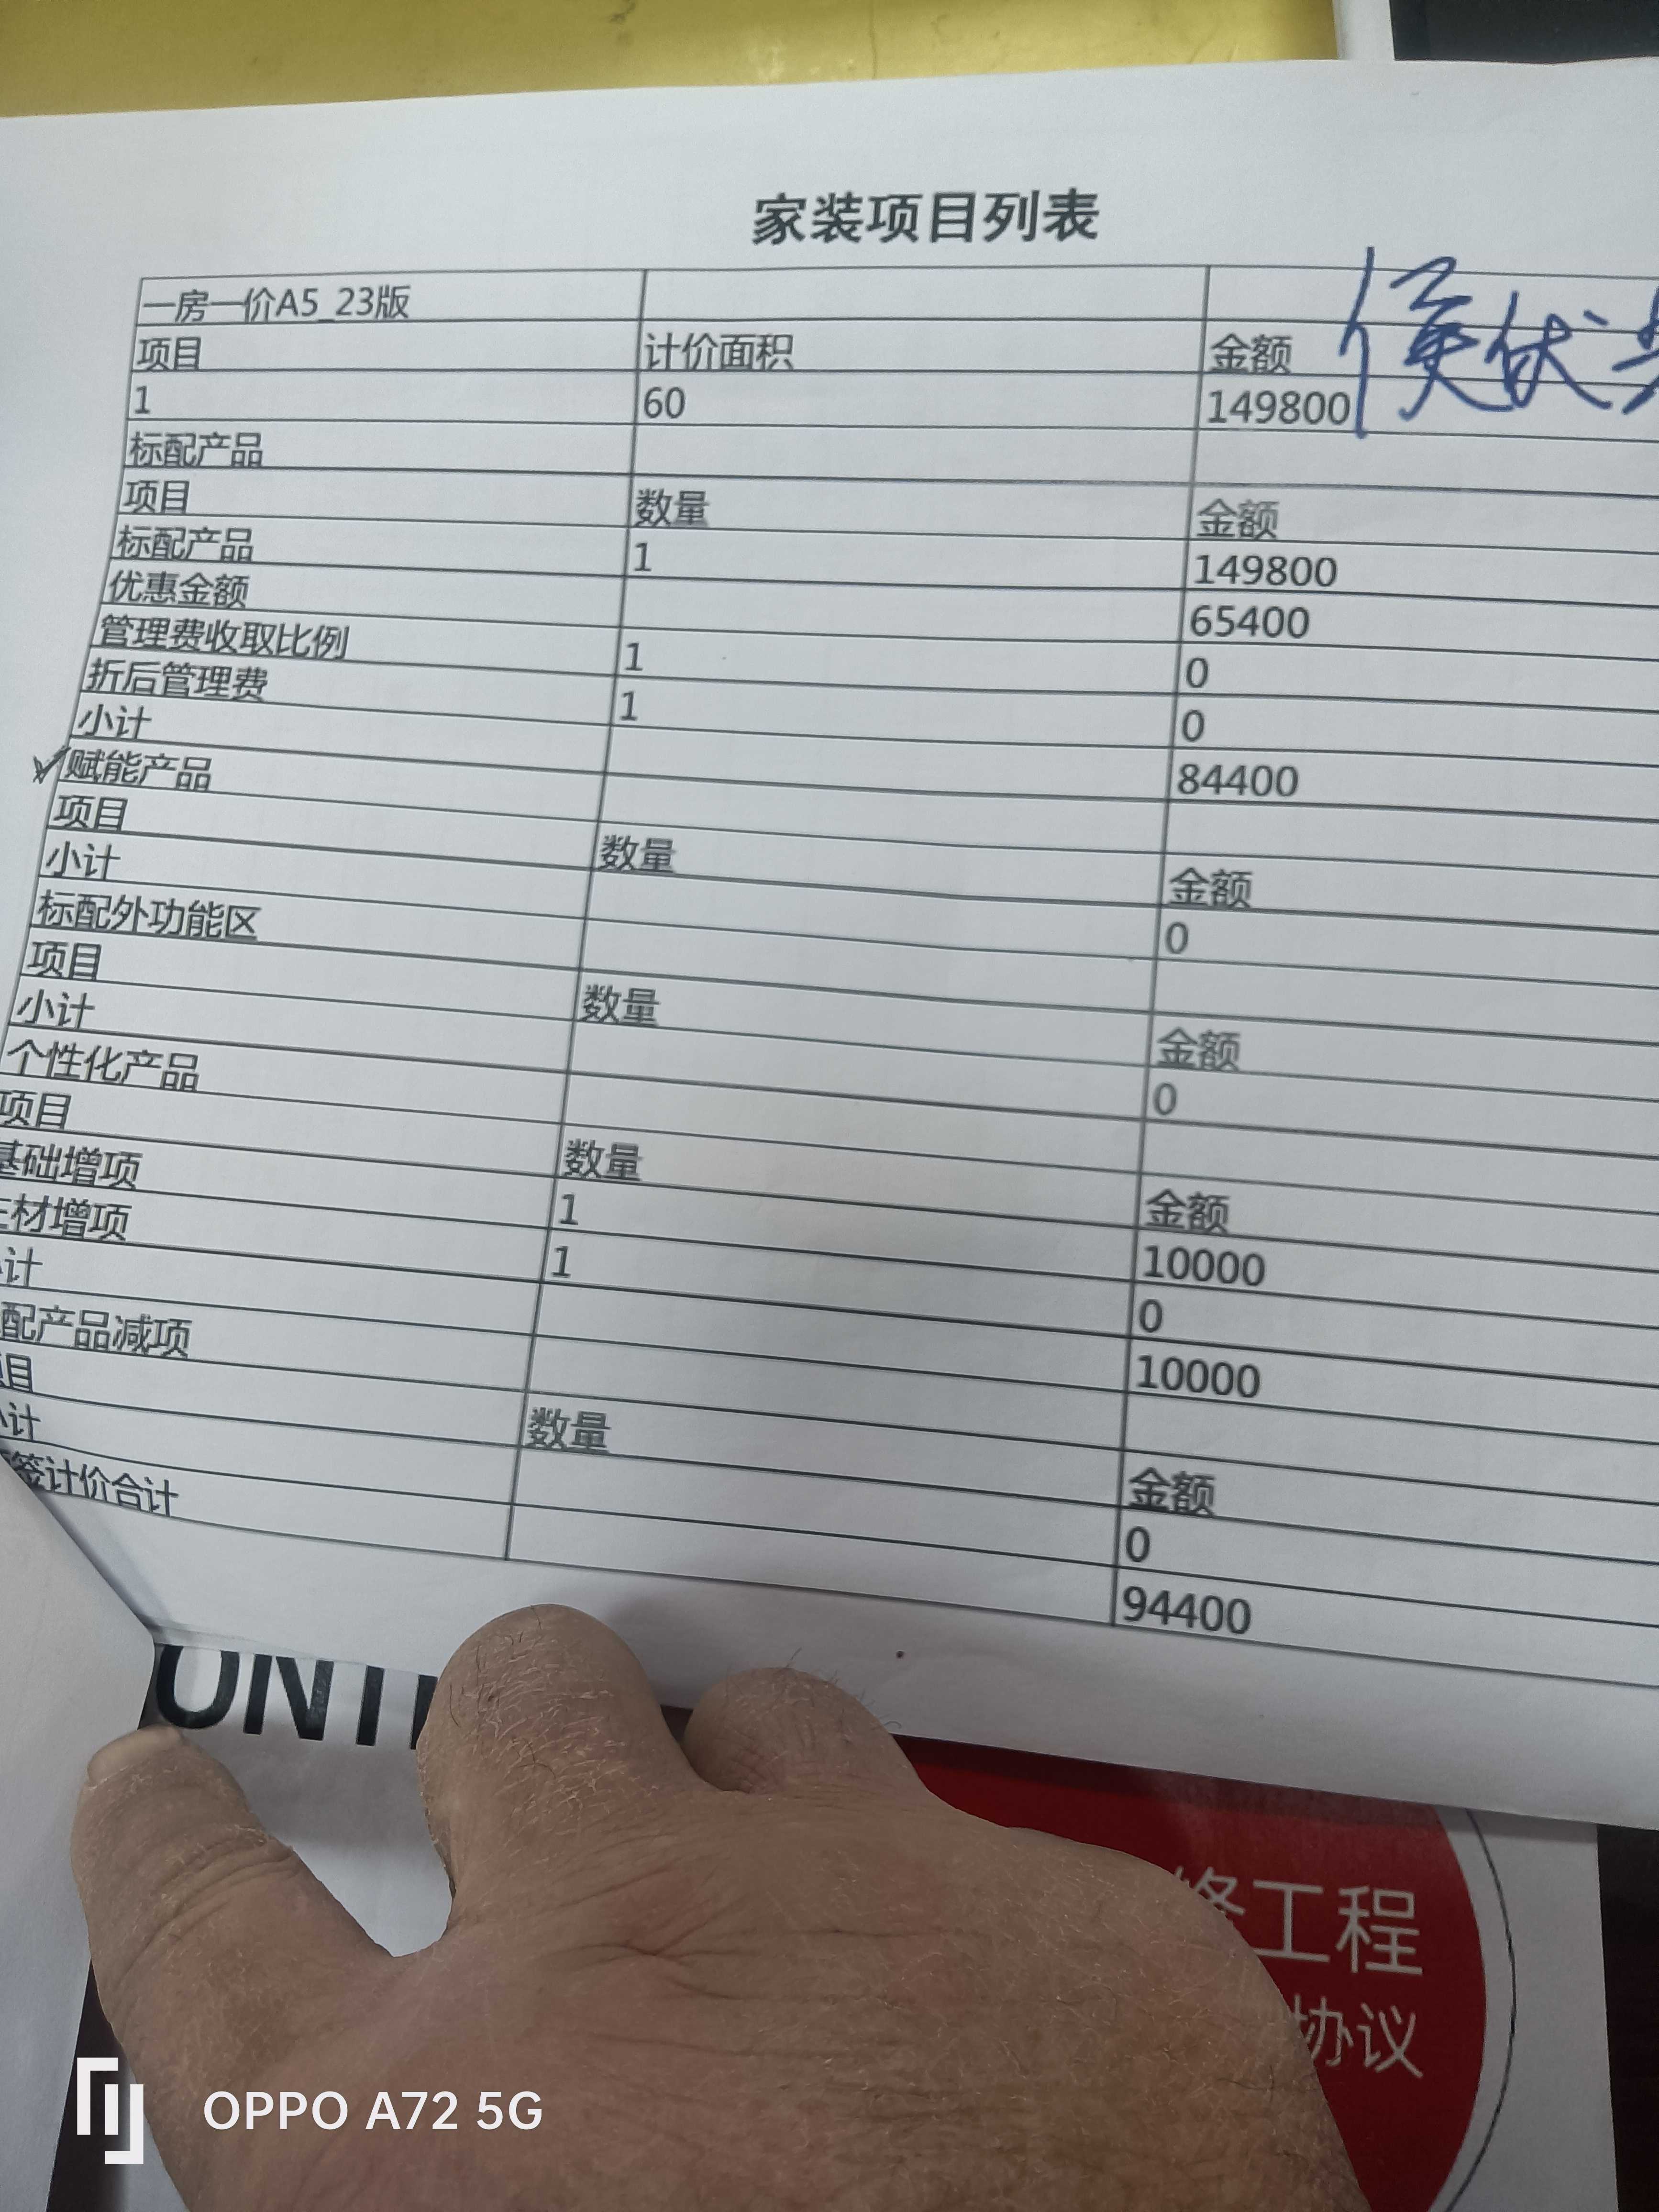 家装项目列表
一房一价A5_23版
项目 计价面积 金额
1 60 149800
侯伏
标配产品
项目 数量 金额
标配产品 1 149800
优惠金额 65400
管理费收取比例 1 0
折后管理费 1 0
小计 84400
赋能产品
项目 数量 金额
小计 0
标配外功能区
项目 数量 金额
小计 0
个性化产品
项目 数量 金额
基础增项 1 10000
材增项 1 0
计 10000
配产品减项
目 数量 金额
计 0
签计价合计 94400
ONT
修工程
协议
OPPO A72 5G